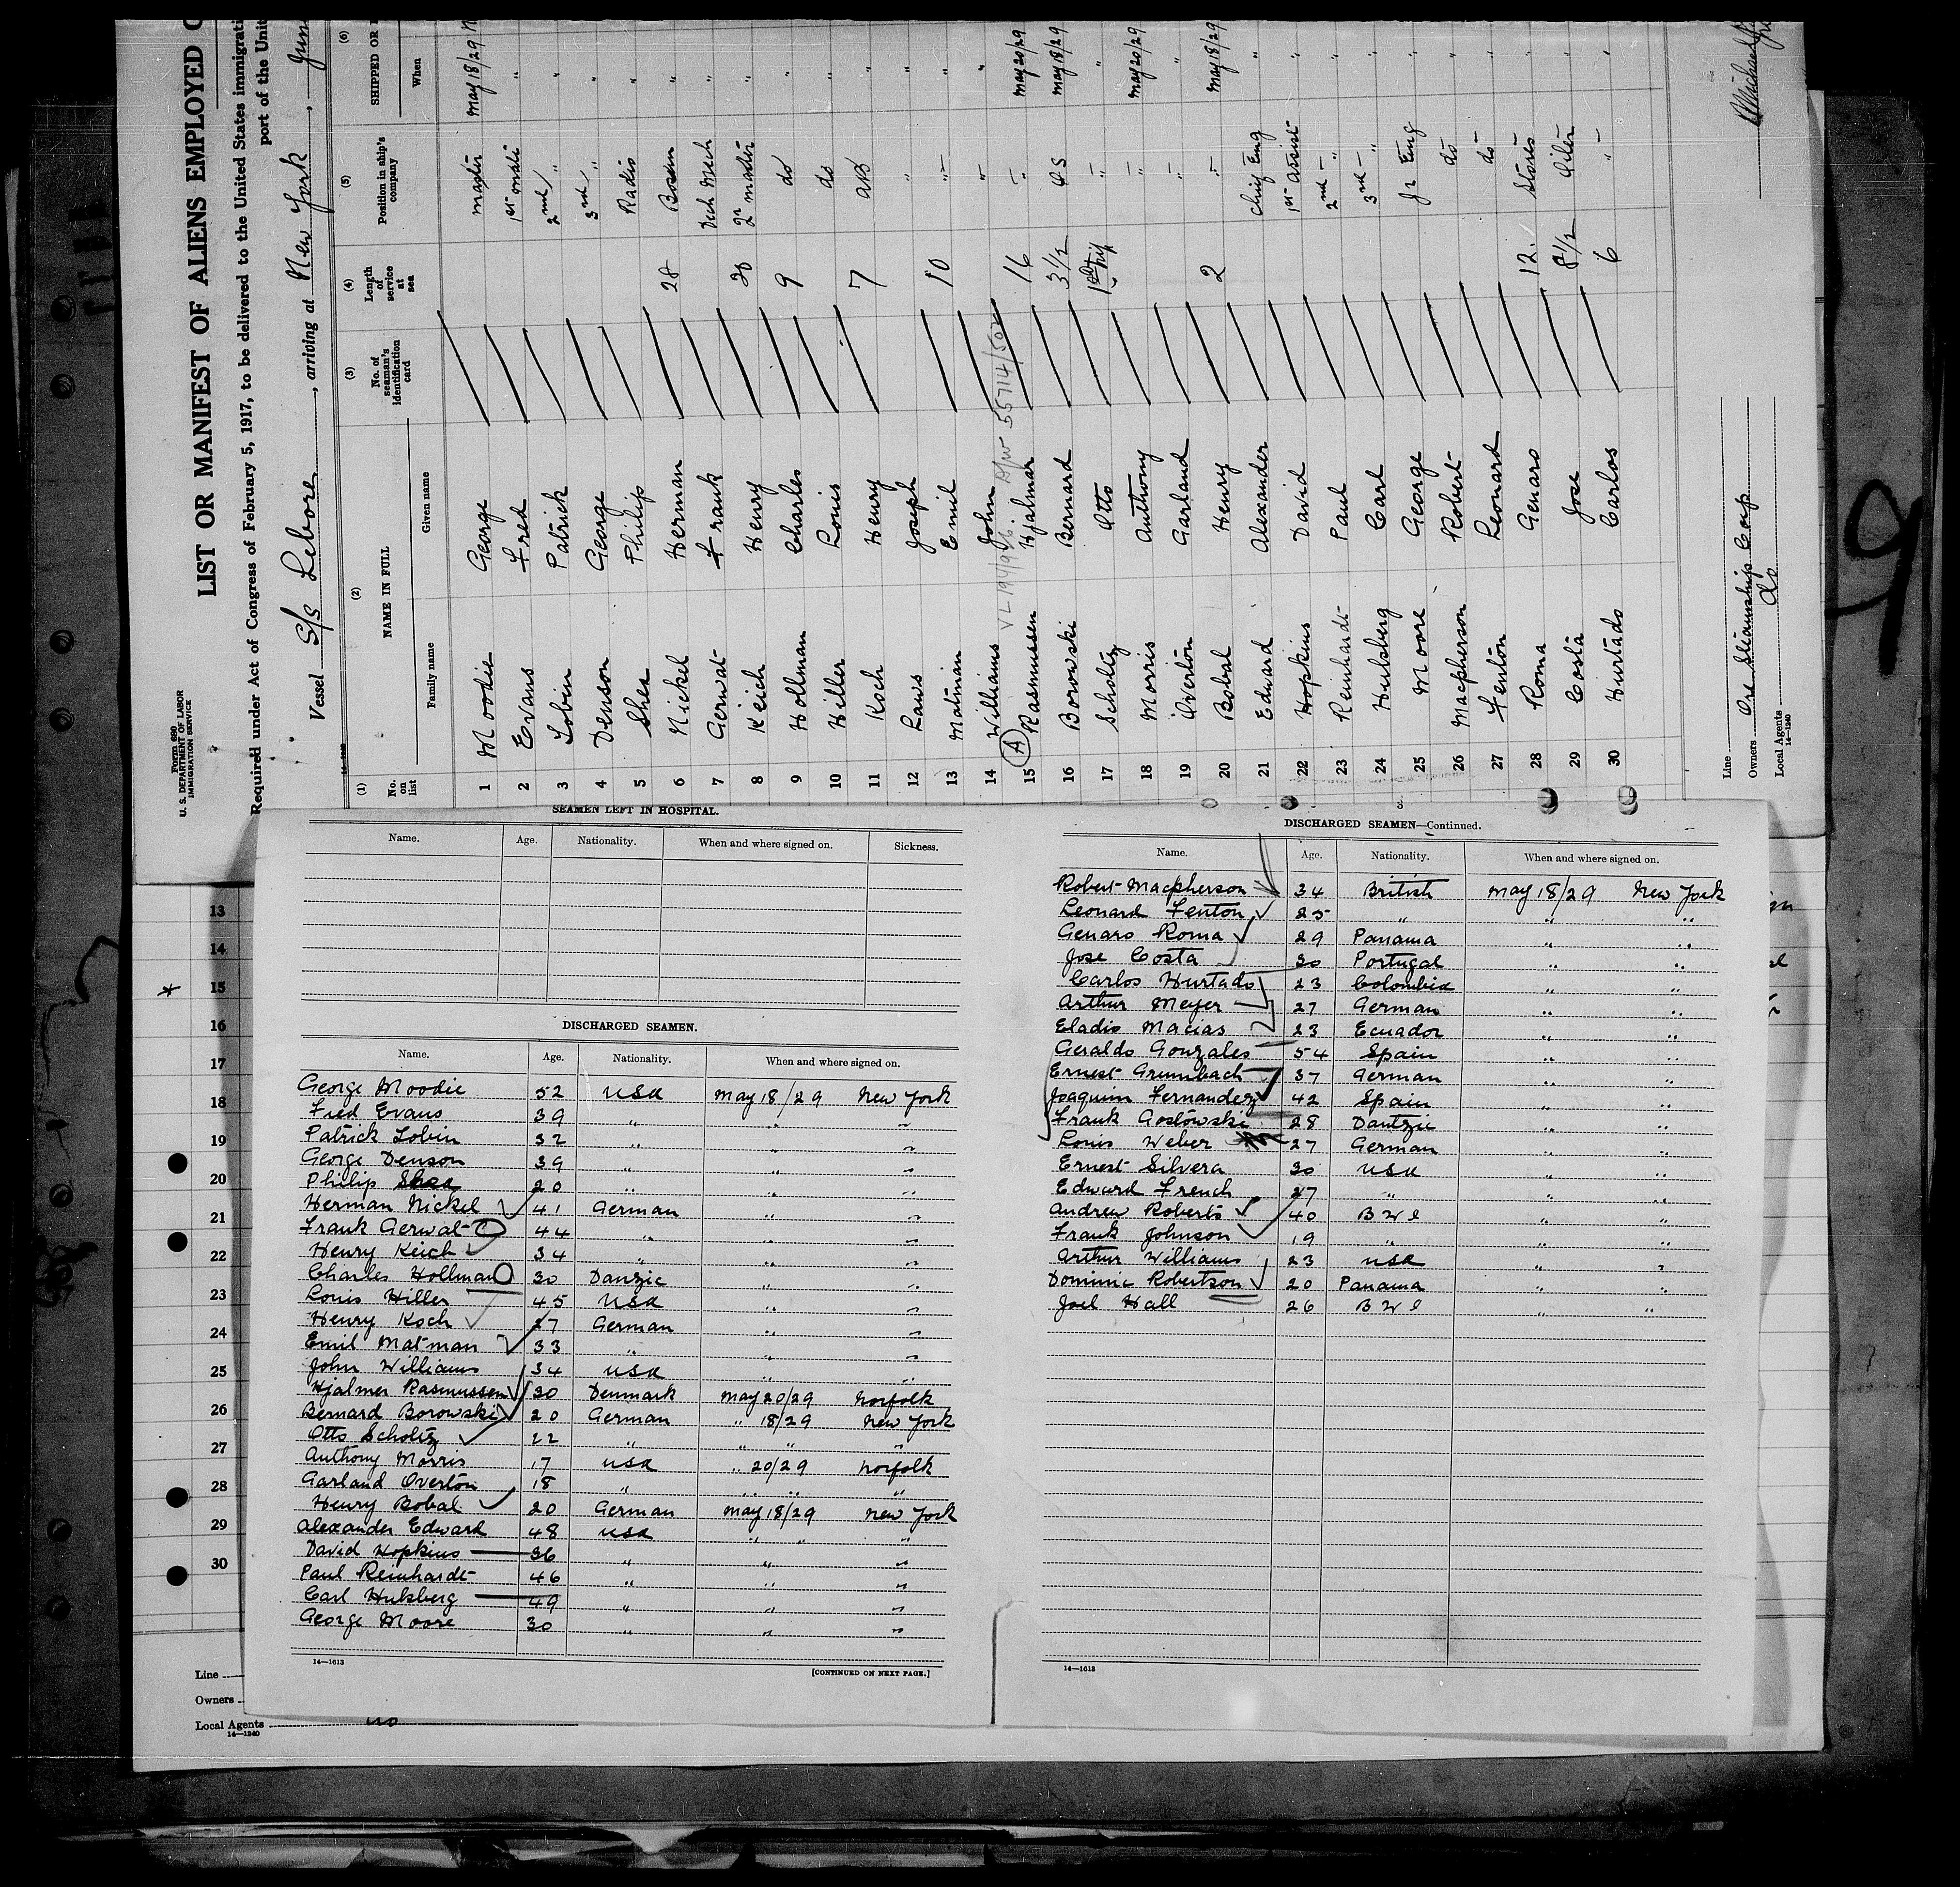 Form 680
U. S. DEPARTMENT OF LABOR
IMMIGRATION SERVICE
LIST OR MANIFEST OF ALIENS EMPLOYED
Required under Act of Congress of February 5, 1917, to be delivered to the United States immigrati
port of the Unit
Vessel S/S Lebore, arriving at New York,
(1) (2) (3) (4) (5) (6)
No. on list NAME IN FULL No. of seaman's identification card Length of service at sea Position in ship's company SHIPPED OR
Family name Given name When
1 Moodie George master May 18/29
2 Evans Fred 1st mate "
3 Tobin Patrick 2nd " "
4 Denson George 3rd " "
5 Shea Philip Radio "
6 Nickel Herman 28 Bosun "
7 Gerwat Frank Deck Mech "
8 Keich Henry 20 "
9 Hollman Charles 9 do "
10 Hiller Louis do "
11 Koch Henry 7 AB "
12 Laws Joseph " "
13 Matman Emil 10 " "
14 Williams John " "
15 Rasmussen Hjalmar 16 " May 20/29
16 Borowski Bernard 3 1/2 OS May 18/29
17 Scholtz Otto " "
18 Morris Anthony " May 20/29
19 Overton Garland " "
20 Bobal Henry 2 " May 18/29
21 Edward Alexander Chief Eng "
22 Hopkins David 1st assist "
23 Reinhardt Paul 2nd " "
24 Hulsberg Carl 3rd " "
25 Moore George Jr Eng "
26 Macpherson Robert do "
27 Fenton Leonard do "
28 Roma Genaro 12 Stores "
29 Costa Jose 8 1/2 Oiler "
30 Hurtado Carlos 6 " "
Line
Owners Ore Steamship Corp
Local Agents do
14—1240
SEAMEN LEFT IN HOSPITAL.
Name. Age. Nationality. When and where signed on. Sickness.
DISCHARGED SEAMEN.
Name. Age. Nationality. When and where signed on.
George Moodie 52 USA May 18/29 New York
Fred Evans 39 " " "
Patrick Tobin 32 " " "
George Denson 39 " " "
Philip Shea 20 " " "
Herman Nickel 41 German " "
Frank Gerwat 44 " " "
Henry Keich 34 " " "
Charles Hollman 30 Danzic " "
Louis Hiller 45 USA " "
Henry Koch 27 German " "
Emil Matman 33 " " "
John Williams 34 USA " "
Hjalmer Rasmussen 30 Denmark May 20/29 Norfolk
Bernard Borowski 20 German " 18/29 New York
Otto Scholtz 22 " " " "
Anthony Morris 17 USA " 20/29 Norfolk
Garland Overton 18 " " " "
Henry Bobal 20 German May 18/29 New York
Alexander Edward 48 USA " " "
David Hopkins 36 " " "
Paul Reinhardt 46 " " "
Carl Hulsberg 49 " " "
George Moore 30 " " "
14—1613 [CONTINUED ON NEXT PAGE.]
DISCHARGED SEAMEN—Continued.
Name. Age. Nationality. When and where signed on.
Robert Macpherson 34 British May 18/29 New York
Leonard Fenton 25 " " "
Genaro Roma 29 Panama " "
Jose Costa 30 Portugal " "
Carlos Hurtado 23 Colombia " "
Arthur Meyer 27 German " "
Eladio Macias 23 Ecuador " "
Geraldo Gonzales 54 Spain " "
Ernest Grumbach 37 German " "
Joaquim Fernandez 42 Spain " "
Frank Gostowski 28 Dantzic " "
Louis Weber 27 German " "
Ernest Silvera 30 USA " "
Edward French 27 " " "
Andrew Roberts 40 B W I " "
Frank Johnson 19 " " "
Arthur Williams 23 USA " "
Dominic Robertson 20 Panama " "
Joel Hall 26 B W I " "
14—1613
13
14
15
16
17
18
19
20
21
22
23
24
25
26
27
28
29
30
Line
Owners
Local Agents
14—1240
9